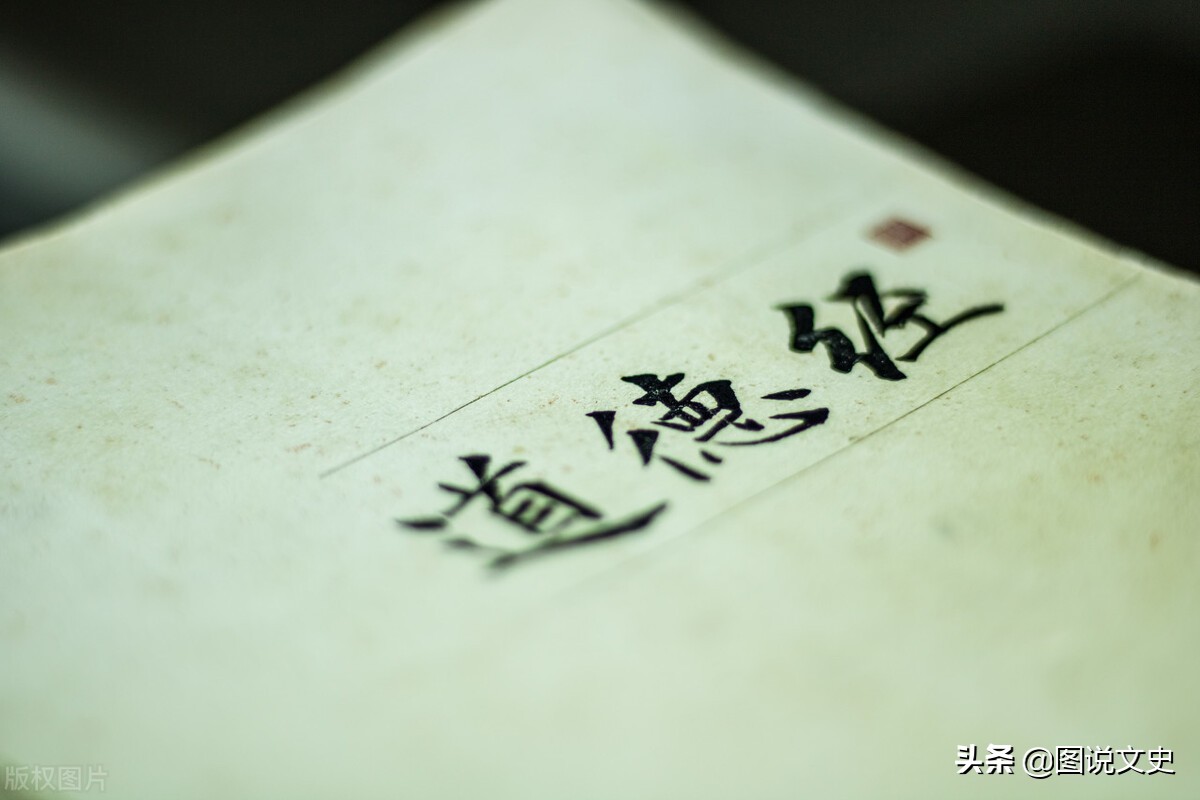 道德经
头条 @图说文史
版权图片